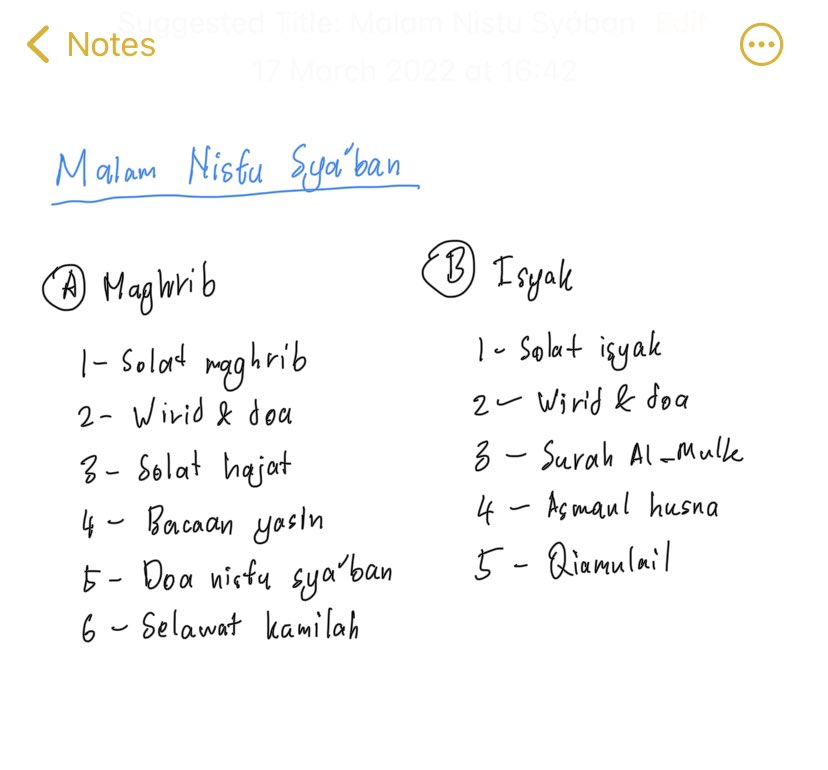 Suggested Title: Malam Nistu Syaban Edit
Notes
17 March 2022 at 16:42
Malam Nisfu Sya'ban
A Maghrib
1- Solat maghrib
2- Wirid & doa
3- Solat hajat
4- Bacaan yasin
5- Doa nisfu sya'ban
6- Selawat kamilah
B Isyak
1- Solat isyak
2- Wirid & doa
3- Surah Al-Mulk
4- Asmaul husna
5- Qiamulail